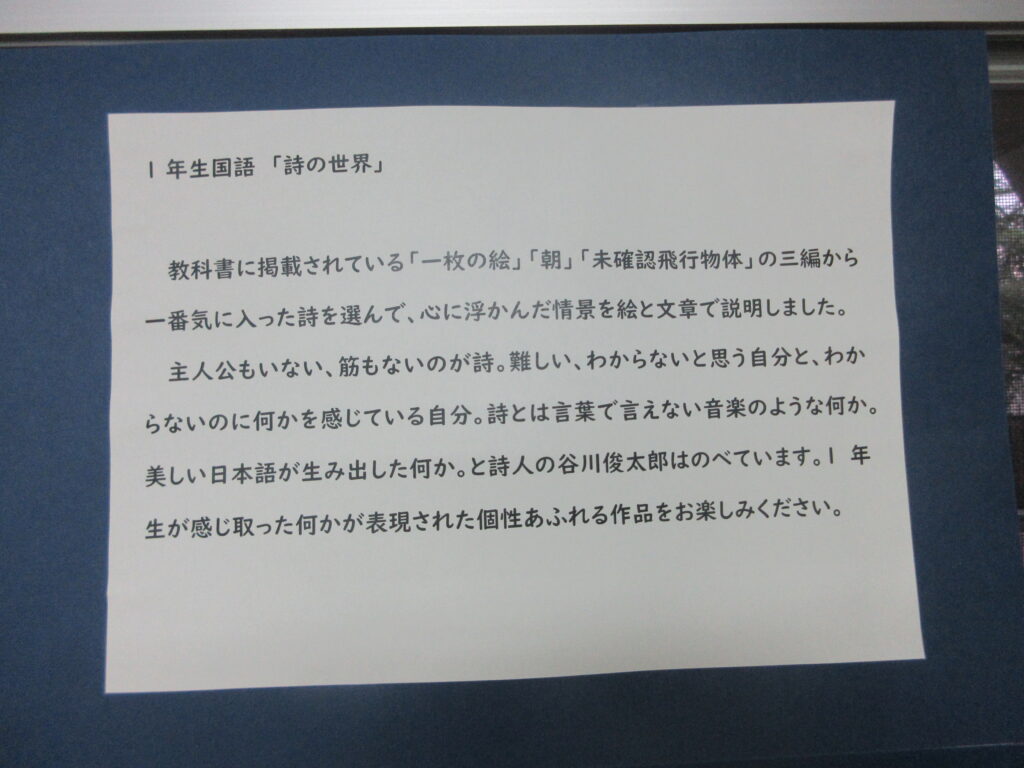 1 年生国語 「詩の世界」
教科書に掲載されている「一枚の絵」「朝」「未確認飛行物体」の三編から
一番気に入った詩を選んで、心に浮かんだ情景を絵と文章で説明しました。
主人公もいない、筋もないのが詩。難しい、わからないと思う自分と、わか
らないのに何かを感じている自分。詩とは言葉で言えない音楽のような何か。
美しい日本語が生み出した何か。と詩人の谷川俊太郎はのべています。1 年
生が感じ取った何かが表現された個性あふれる作品をお楽しみください。